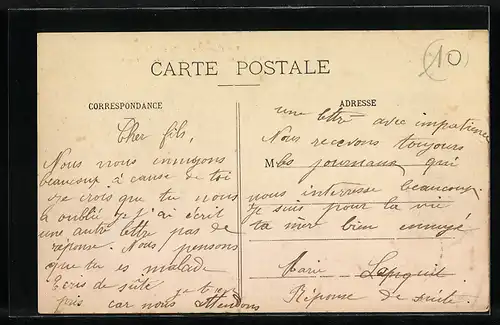 10
CARTE POSTALE
CORRESPONDANCE
Cher fils,
Nous nous ennuyons
beaucoup à cause de toi
Je crois que tu nous
a oublié je j'ai écrit
une autre lettre pas de
réponse. Nous pensons
que tu es malade
Ecris de suite
pris car nous attendons
ADRESSE
une lettre avec impatience
Nous recevons toujours
M les journaux qui
nous interresse beaucoup.
Je suis pour la vie
ta mère bien
Marie
Réponse de suite.